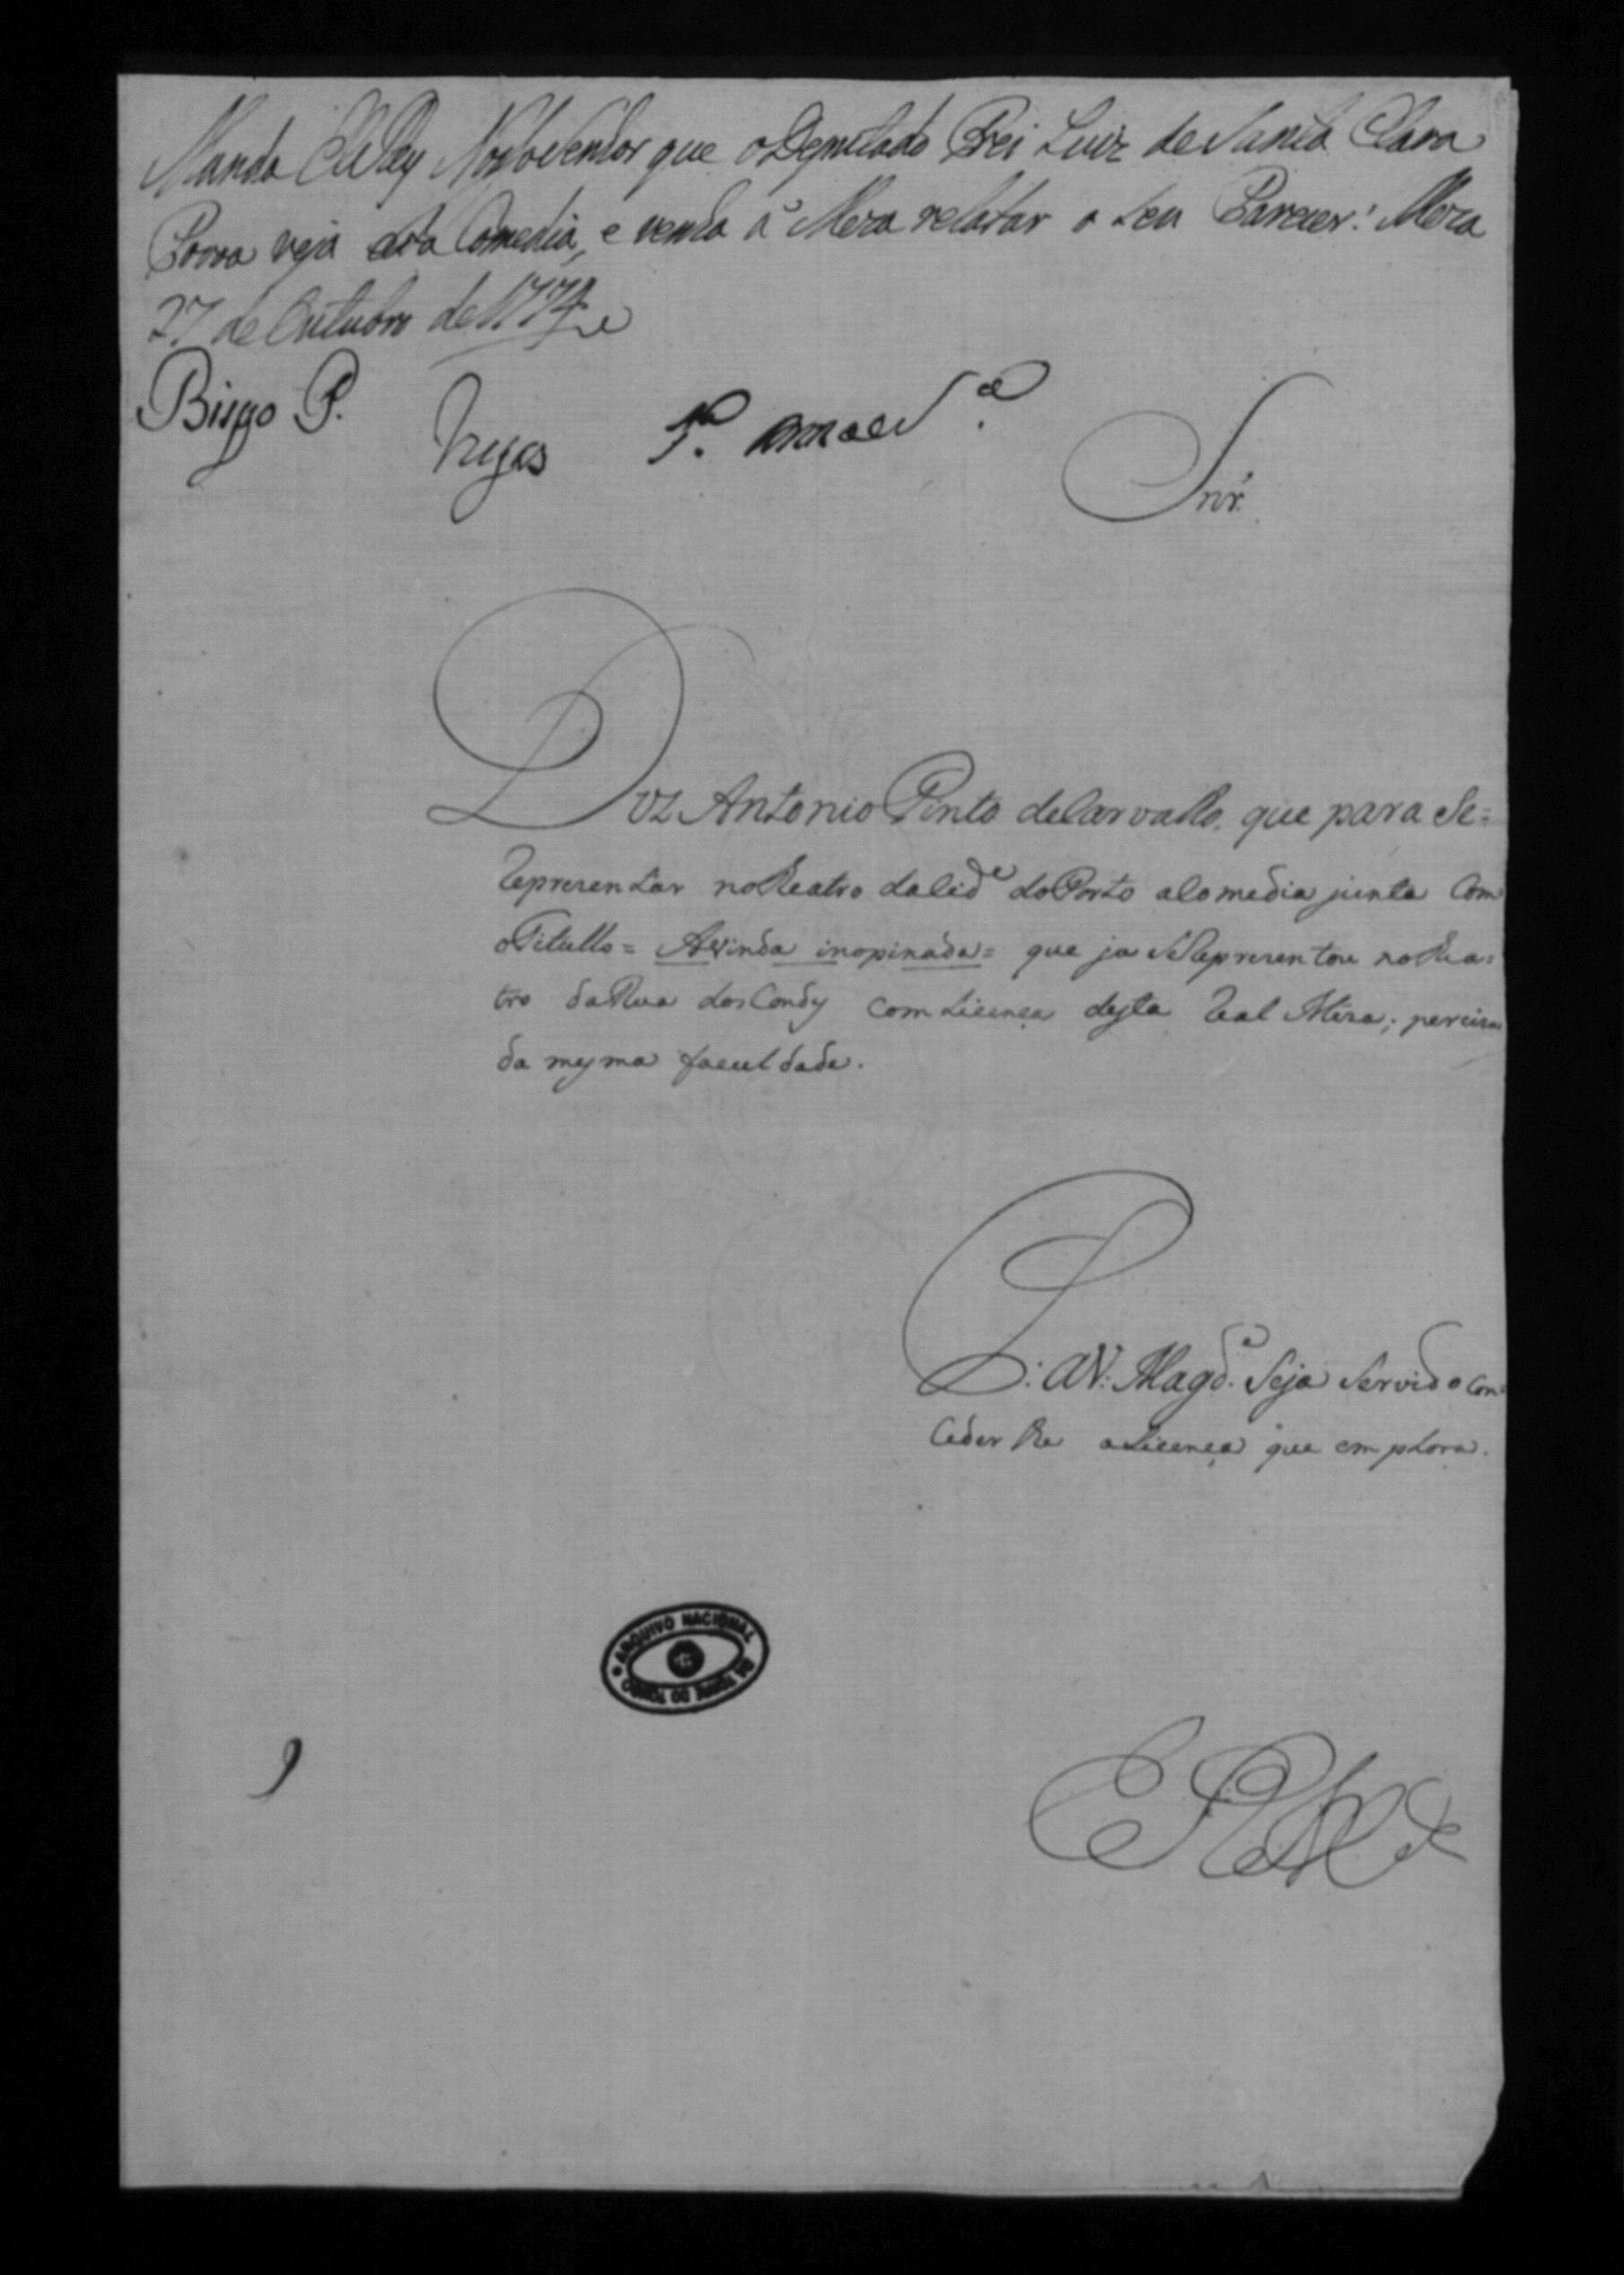 Manda ElRey Nosso Senhor que o Deputado Frei Luiz de Santa Clara
Povoa veja esta Comedia, e venha á Meza relatar o seu Parecer. Meza
27 de Outubro de 1774
Bispo P.
Snr.
Diz Antonio Pinto de Carvalho, que para Se=
Reprezentar no Theatro da Cidᵉ do Porto a Comedia junta Com
o Titullo = A Vinda inopinada = que ja Se Reprezentou no Thea=
tro da Rua dos Condes Com Licença desta Real Meza; perciza
da mesma faculdade.
P. a V. Magdᵉ. Seja Servido Con=
Ceder lhe a Licença que emplora.
ARQUIVO NACIONAL
DA TORRE DO TOMBO
E R Mᶜᵉ